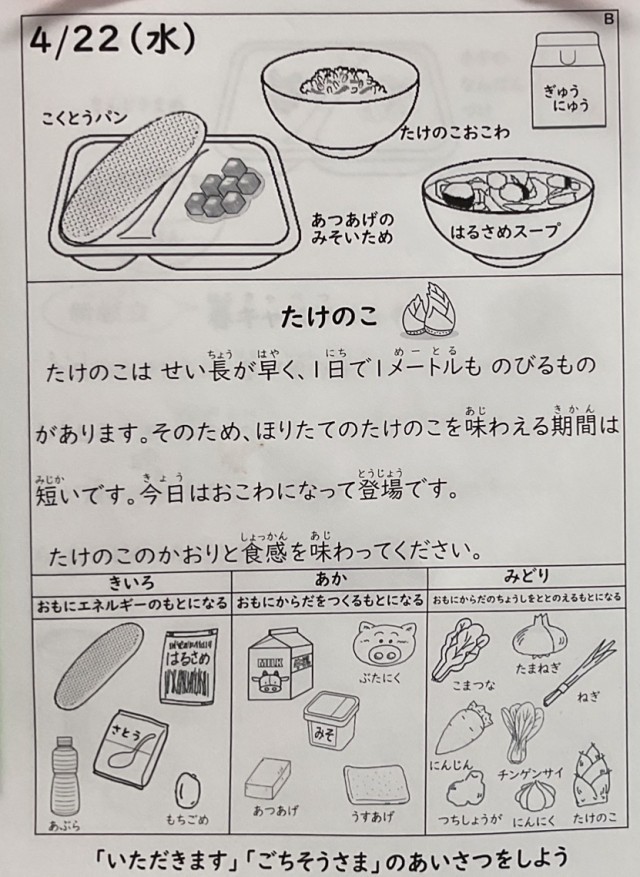 B
4/22(水)
こくとうパン
たけのこおこわ
ぎゅう
にゅう
あつあげの
みそいため
はるさめスープ
たけのこ
たけのこは せい長が早く、1日で1メートルも のびるもの
があります。そのため、ほりたてのたけのこを味わえる期間は
短いです。今日はおこわになって登場です。
たけのこのかおりと食感を味わってください。
きいろ
あか
みどり
おもにエネルギーのもとになる
おもにからだをつくるもとになる
おもにからだのちょうしをととのえるもとになる
はるさめ
さとう
あぶら
もちごめ
MILK
ぶたにく
みそ
あつあげ
うすあげ
こまつな
たまねぎ
ねぎ
にんじん
チンゲンサイ
つちしょうが
にんにく
たけのこ
「いただきます」「ごちそうさま」のあいさつをしよう